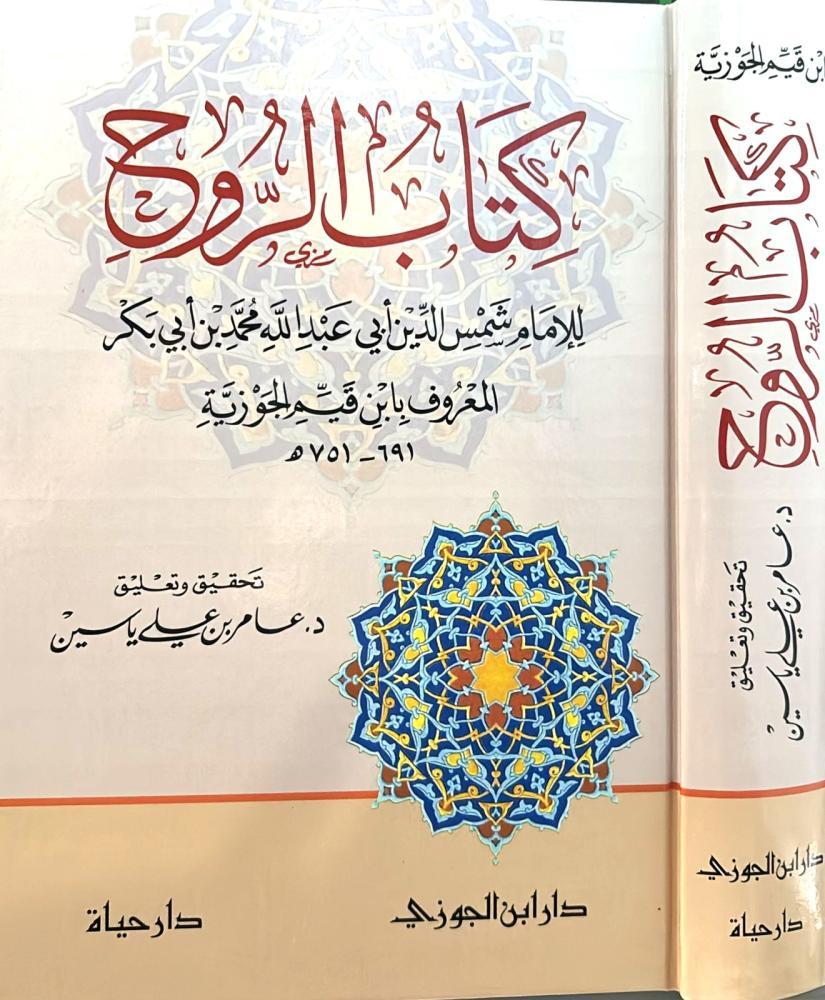 كِتَابُ الرُّوحِ
للإمَامِ شَمْسِ الدِّين أبي عَبْدِ اللهِ مُحَمَّد بْنِ أبي بَكْر
المَعْرُوف بِابْنِ قَيِّم الجَوْزيَّة
٦٩١ - ٧٥١ ه
تَحقيق وتعليق
د. عامر بن علي ياسين
دار ابن الجوزي
دار حياة
ابْن قَيِّم الجَوْزيَّة
كِتَابُ الرُّوحِ
تحقيق وتعليق
د. عامر بن علي ياسين
دار ابن الجوزي
دار حياة